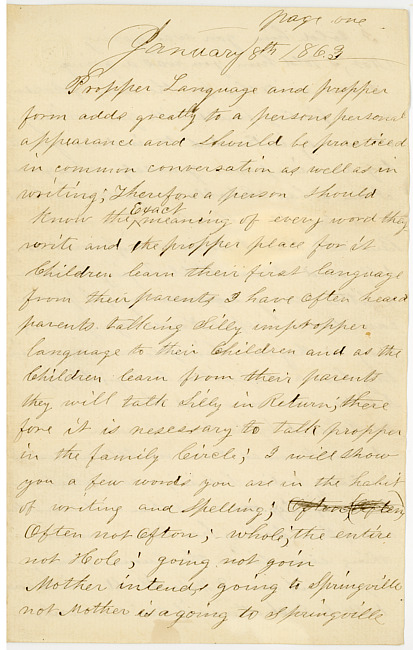 page one.
January 8th 1863
Propper Language and propper
form adds greatly to a persons personal
appearance and should be practiced
in common conversation as well as in
writing; Therefore a person should
Know the Exact meaning of every word they
write and the propper place for it
Children learn their first language
from their parents I have often heard
parents talking Silly impropper
language to their Children and as the
Children learn from their parents
they will talk Silly in Return; there
fore it is nesessary to talk propper
in the family Circle; I will show
you a few words you are in the habit
of writing and Spelling;
Often not Ofton; whole; the entire
not Hole; going not goin
Mother intends going to Springville
not Mother is a going to Springville